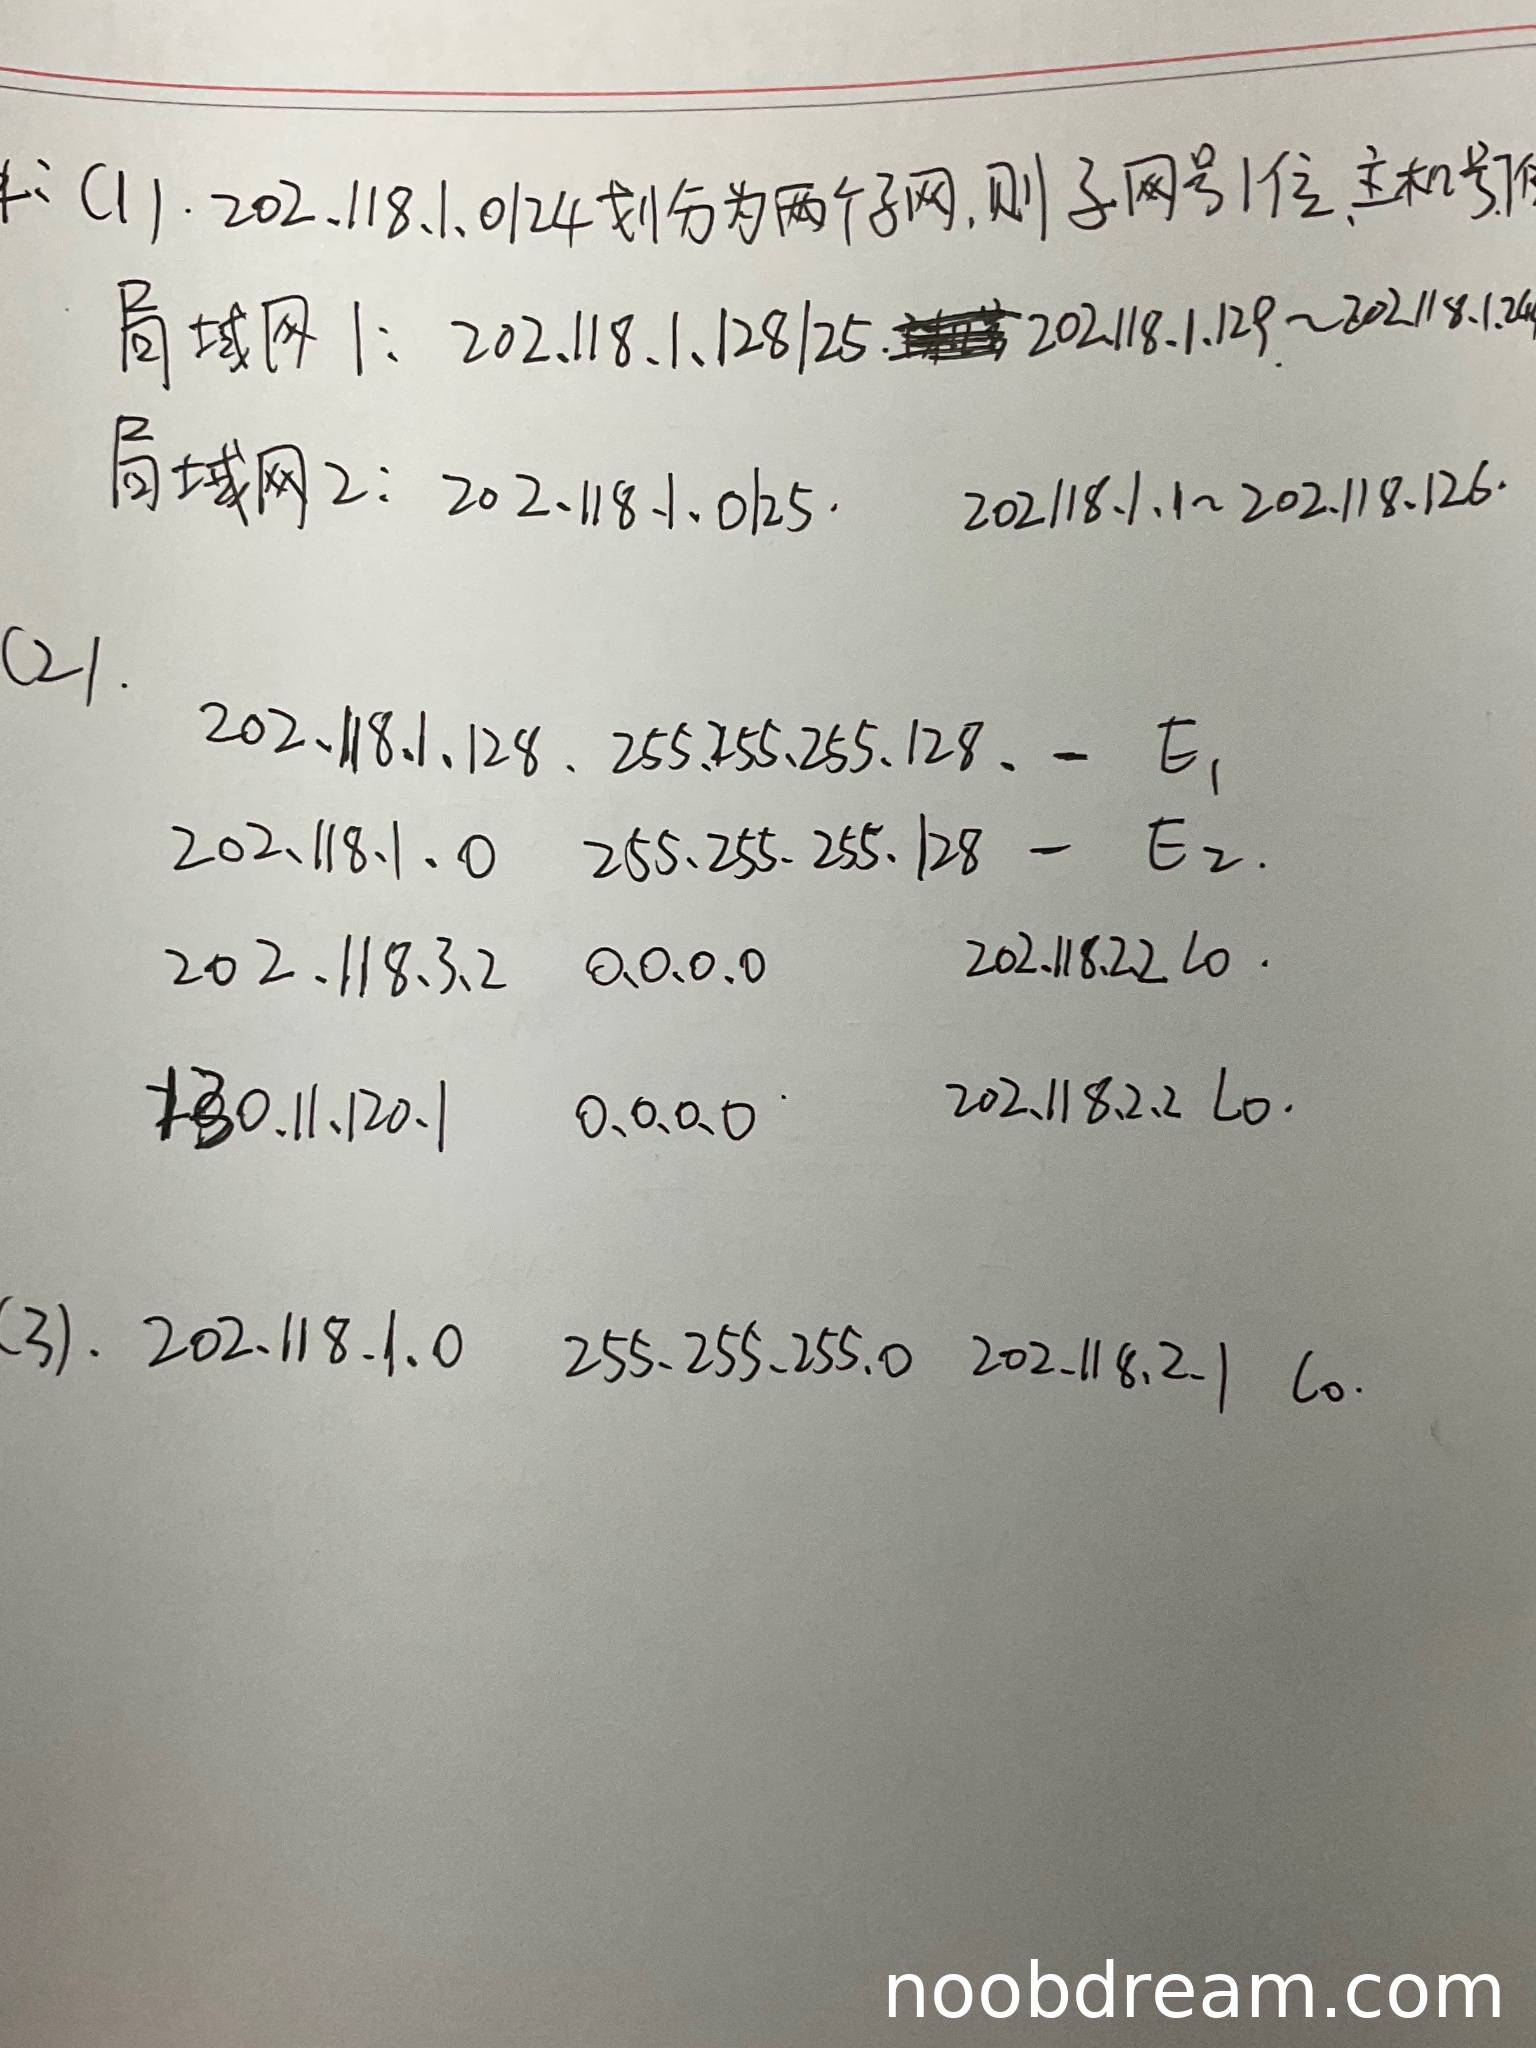 (1). 202.118.1.0/24划分为两个子网,则子网号1位、主机号7位
局域网1: 202.118.1.128/25. 202.118.1.129~202.118.1.24
局域网2: 202.118.1.0/25. 202118.1.1~202.118.126.
(2).
202.118.1.128. 255.255.255.128. - E1
202.118.1.0 255.255.255.128 - E2.
202.118.3.2 0.0.0.0 202.118.2.2 L0.
130.11.120.1 0.0.0.0 202.118.2.2 L0.
(3). 202.118.1.0 255.255.255.0 202.118.2.1 L0.
noobdream.com